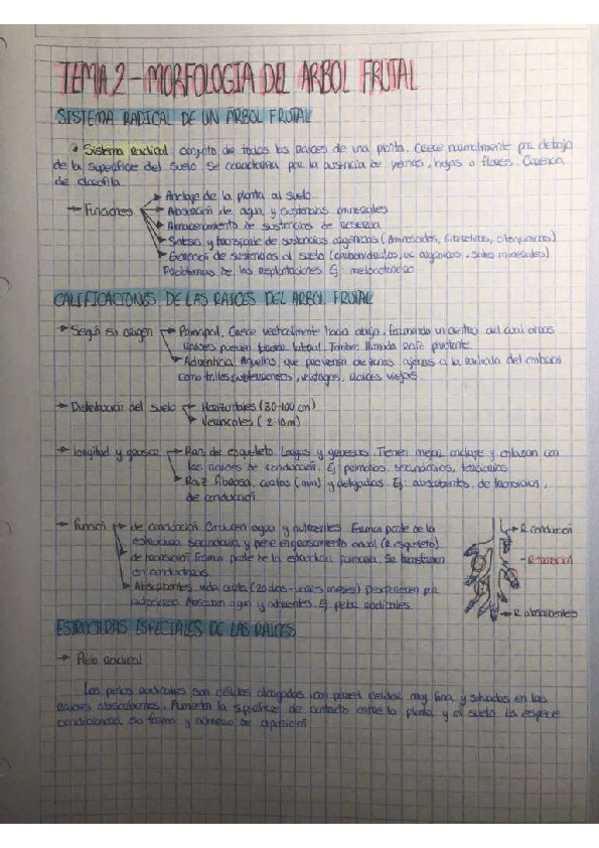 TEMA 2 - MORFOLOGIA DEL ARBOL FRUTAL
SISTEMA RADICAL DE UN ARBOL FRUTAL
• Sistema Radical: conjunto de todas las raices de una planta. Crece normalmente por debajo
de la superficie del suelo. Se caracteriza por la ausencia de yemas, hojas o flores. Carencia
de clorofila.
→ Funciones
Anclaje de la planta al suelo.
Absorción de agua y sustancias minerales
Almacenamiento de sustancias de reserva
Síntesis y transporte de sustancias orgánicas (Aminoácidos, citoquininas)
Excreción de sustancias al suelo (carbohidratos, ac orgánicos, sales minerales)
Problemas de las replantaciones. Ej: melocotonero
CALIFICACIONES DE LAS RAICES DEL ARBOL FRUTAL
→ Según su origen
Principal. Crece verticalmente hacia abajo, formando un centro del cual otras
raices pueden lateral. Tambien llamada raiz pivotante.
Adventicia. Aquellas que provienen de ajenas a la radicula del embrion
como tallos, raices viejas...
→ Distribución del suelo
Horizontales (30-100 cm)
Verticales (2-10m)
→ longitud y grosor
Raiz de esqueleto. Largas y gruesas. Tienen mejor anclaje y enlazan con
las raices de conducción. Ej: primarias, secundarias, terciarias.
Raiz fibrosa, cortas (mm) y delgadas. Ej: absorbentes, de transición,
de conducción
→ Función
de conducción. Conducen agua y nutrientes. Forman parte de la
estructura secundaria y tiene engrosamiento anual (R. esqueleto).
de transición. Forman parte de la estructura primaria. Se transforman
en conductoras.
Absorbentes. vida corta (20 días - meses) Desaparecen por
Absorben agua y nutrientes. Ej: pelos radicales.
→ R conducción
→ R transición
→ R absorbentes
ESTRUCTURAS ESPECIALES DE LAS RAICES
→ Pelo radical
Los pelos radicales son células alargadas, con pared celular muy fina y situadas en las
raices absorbentes. Aumenta la superficie de contacto entre la planta y el suelo. La especie
condicionará su forma y número de aparición